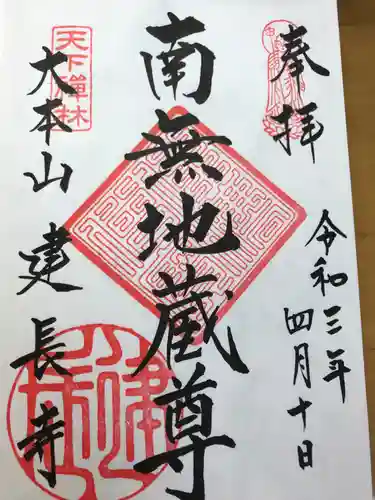 奉拝
令和三年
四月十日
南無地蔵尊
天下禅林
大本山建長寺